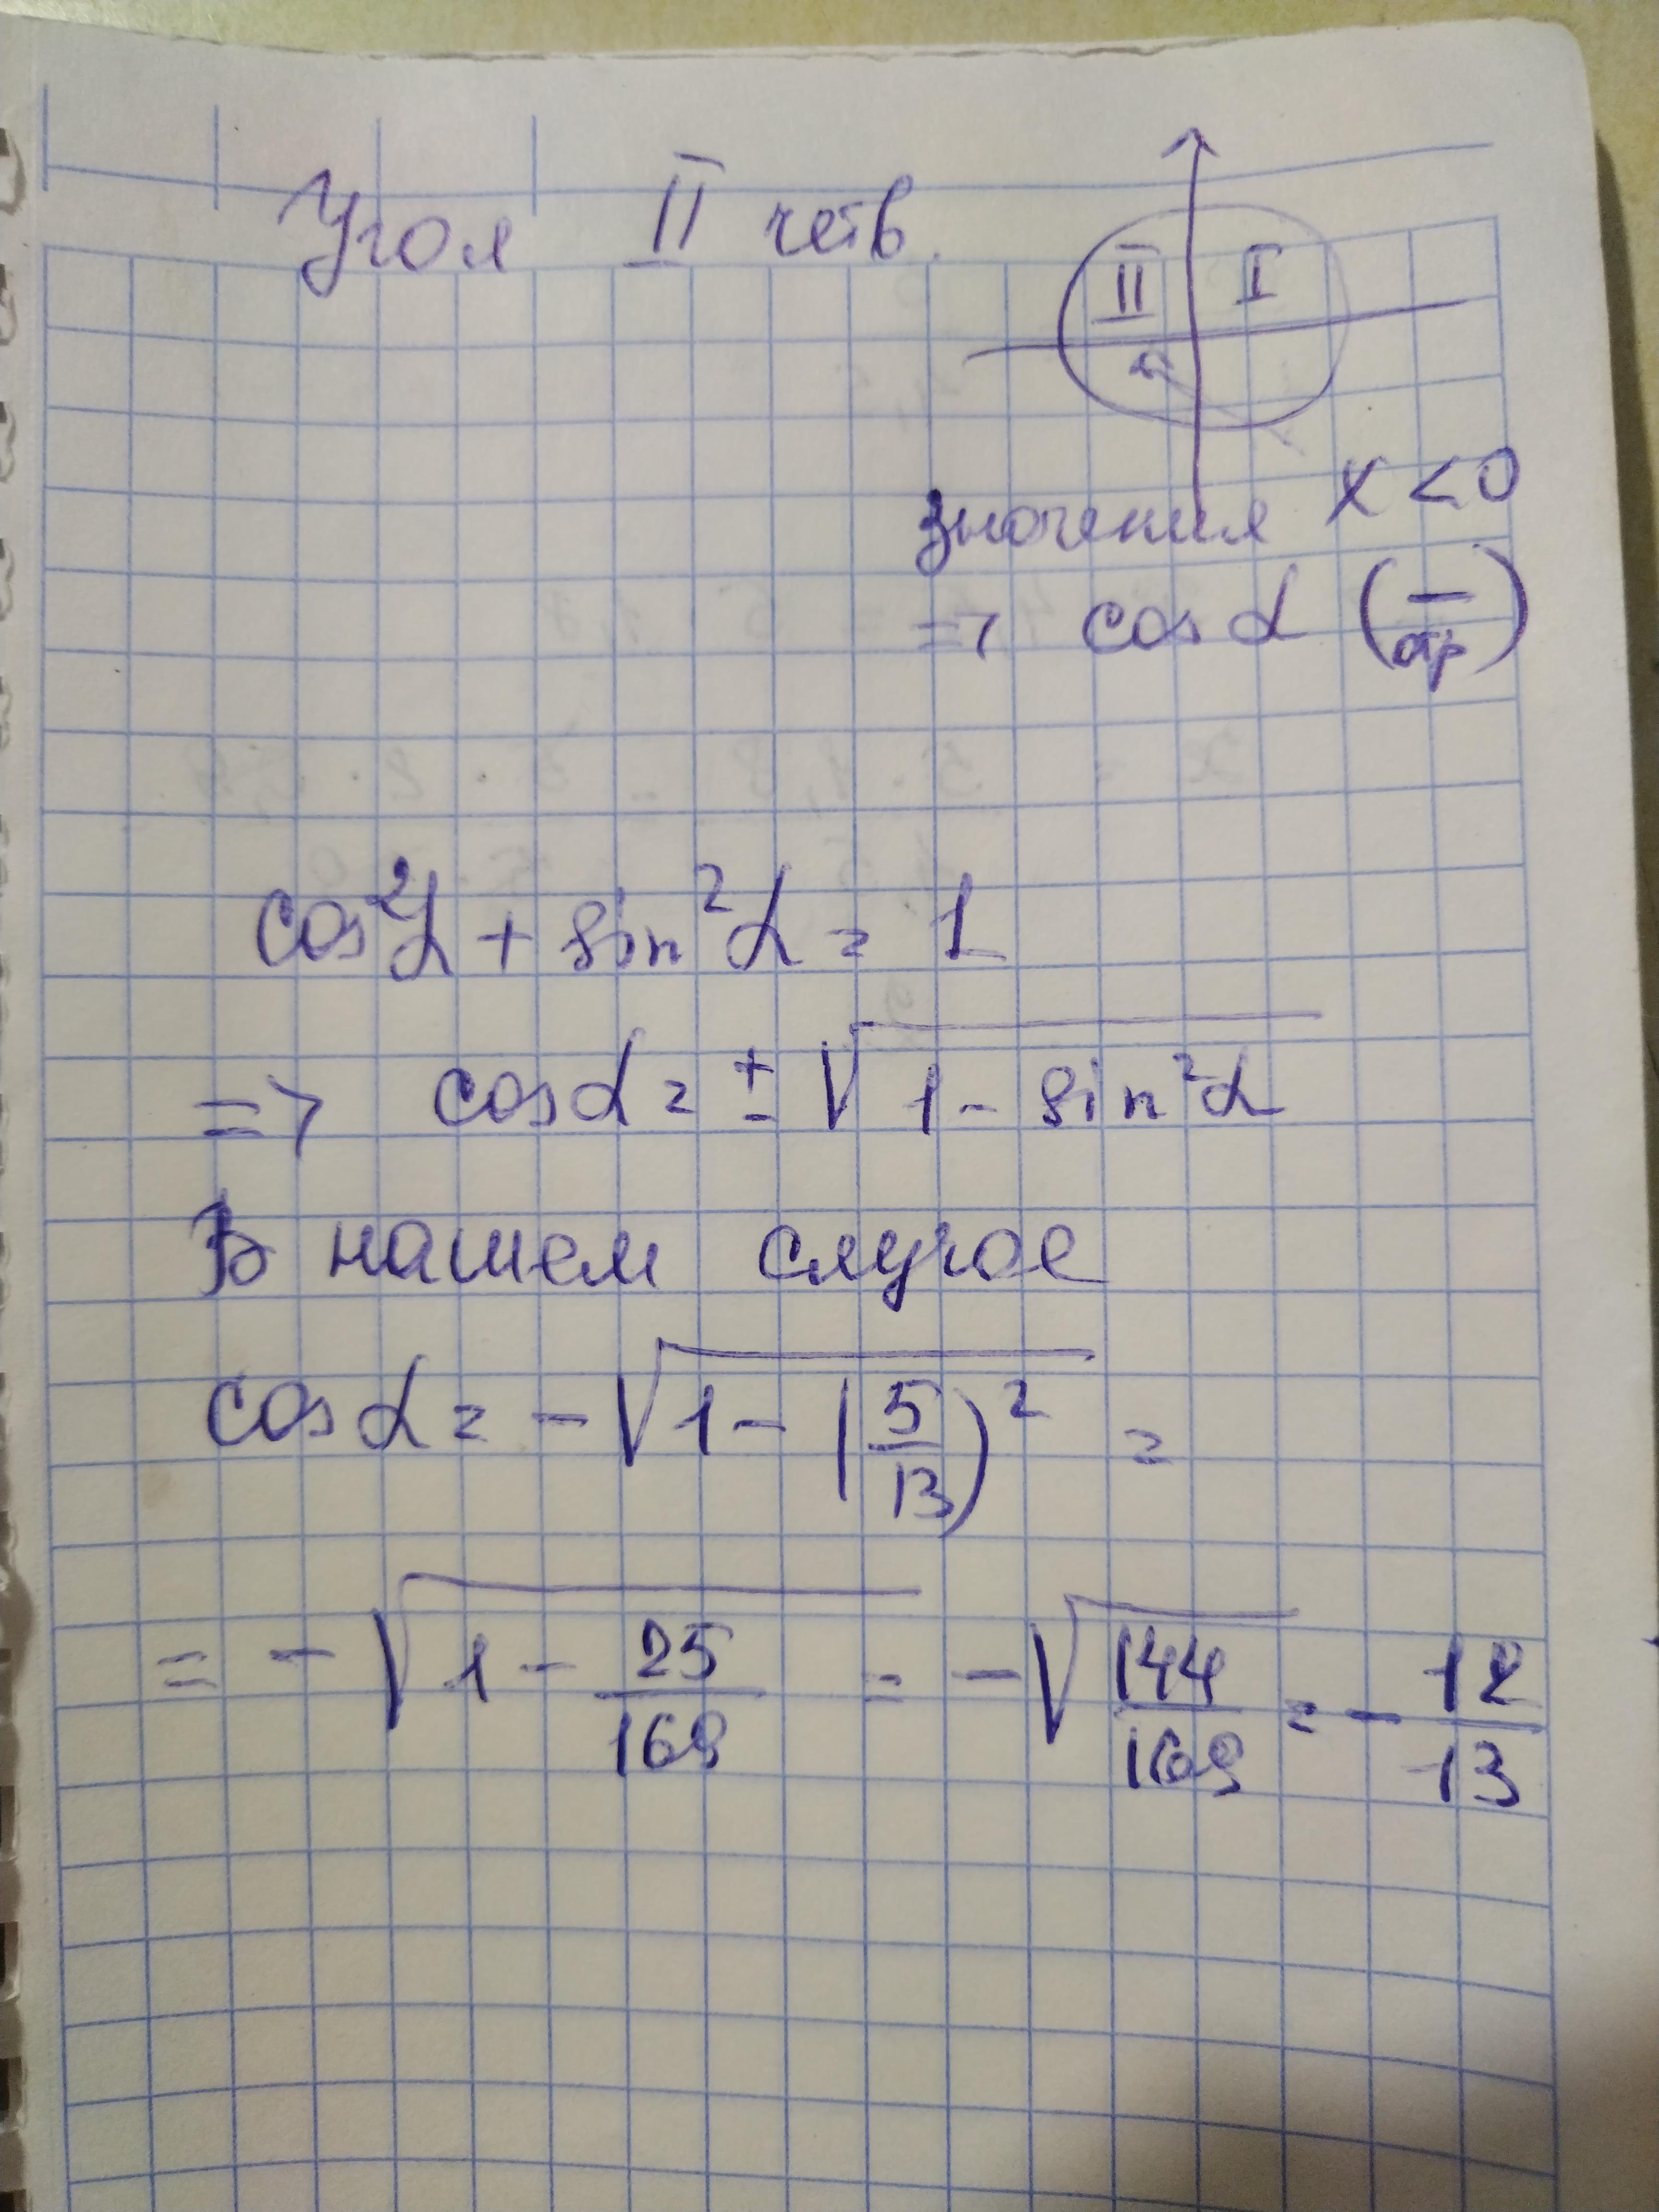 Угол II четв.
II I
значения x < 0
=> cos α (— отр)
cos²α + sin²α = 1
=> cos α = ± √(1 - sin²α)
В нашем случае
cos α = - √(1 - (5/13)²) =
= - √(1 - 25/169) = - √(144/169) = - 12/13